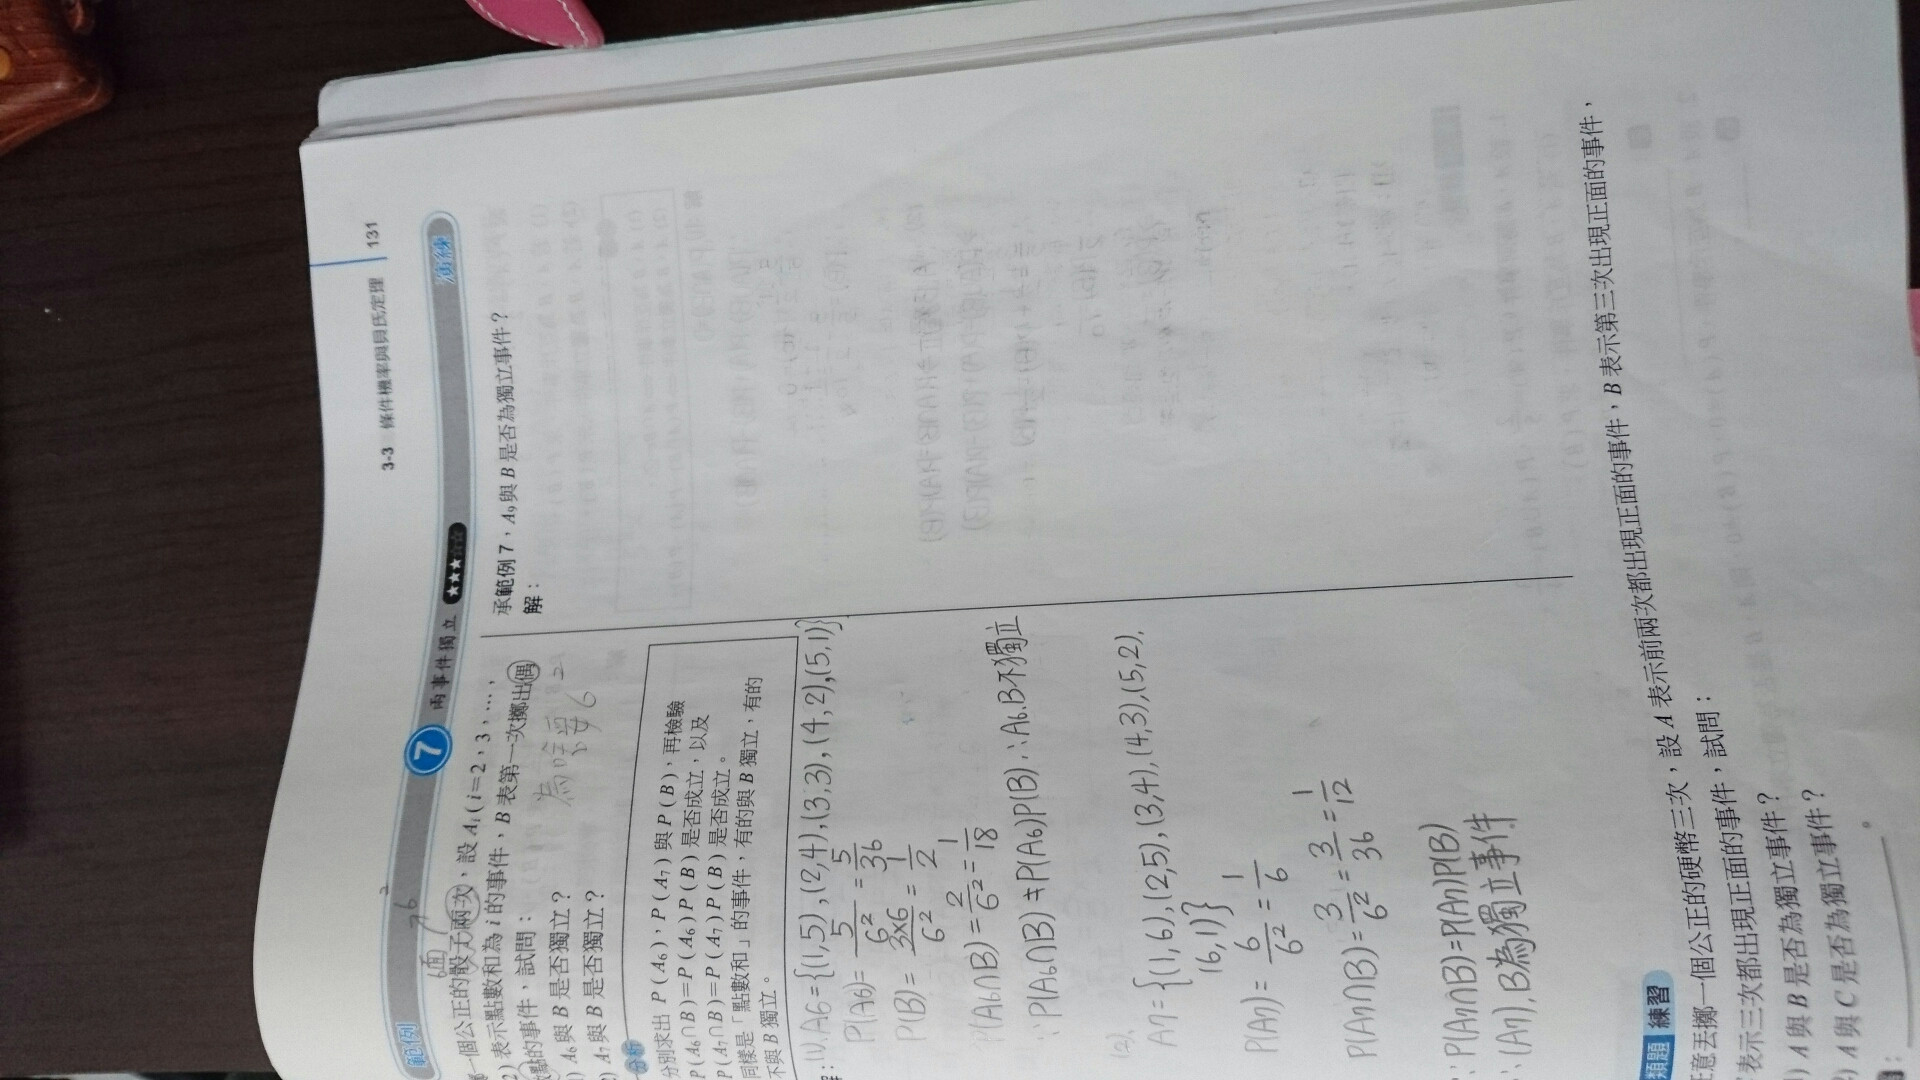 3-3 條件機率與貝氏定理 131
範例 7 兩事件獨立 ★★★☆☆
一個公正的骰子兩次，設 Aᵢ ( i=2，3，…，
2) 表示點數和為 i 的事件，B 表第一次擲出偶
數點的事件，試問：
) A₆ 與 B 是否獨立？
) A₇ 與 B 是否獨立？
6面
6²
為啥要6²
分析
分別求出 P ( A₆ )，P ( A₇ ) 與 P ( B )，再檢驗
P ( A₆∩B )=P ( A₆ ) P ( B ) 是否成立，以及
P ( A₇∩B )=P ( A₇ ) P ( B ) 是否成立。
同樣是「點數和」的事件，有的與 B 獨立，有的
不與 B 獨立。
(1). A6={(1,5),(2,4),(3,3),(4,2),(5,1)}
P(A6)=5/6²=5/36
P(B)=3×6/6²=1/2
P(A6∩B)=2/6²=1/18
∵P(A6∩B)≠P(A6)P(B)∴A6.B不獨立
(2).
A7={(1,6),(2,5),(3,4),(4,3),(5,2),
(6,1)}
P(A7)=6/6²=1/6
P(A7∩B)=3/6²=3/36=1/12
∵P(A7∩B)=P(A7)P(B)
∴(A7),B為獨立事件
演練
承範例 7，A₉ 與 B 是否為獨立事件？
解：
類題 練習
任意丟擲一個公正的硬幣三次，設 A 表示前兩次都出現正面的事件，B 表示第三次出現正面的事件，
表示三次都出現正面的事件，試問：
) A 與 B 是否為獨立事件？
) A 與 C 是否為獨立事件？